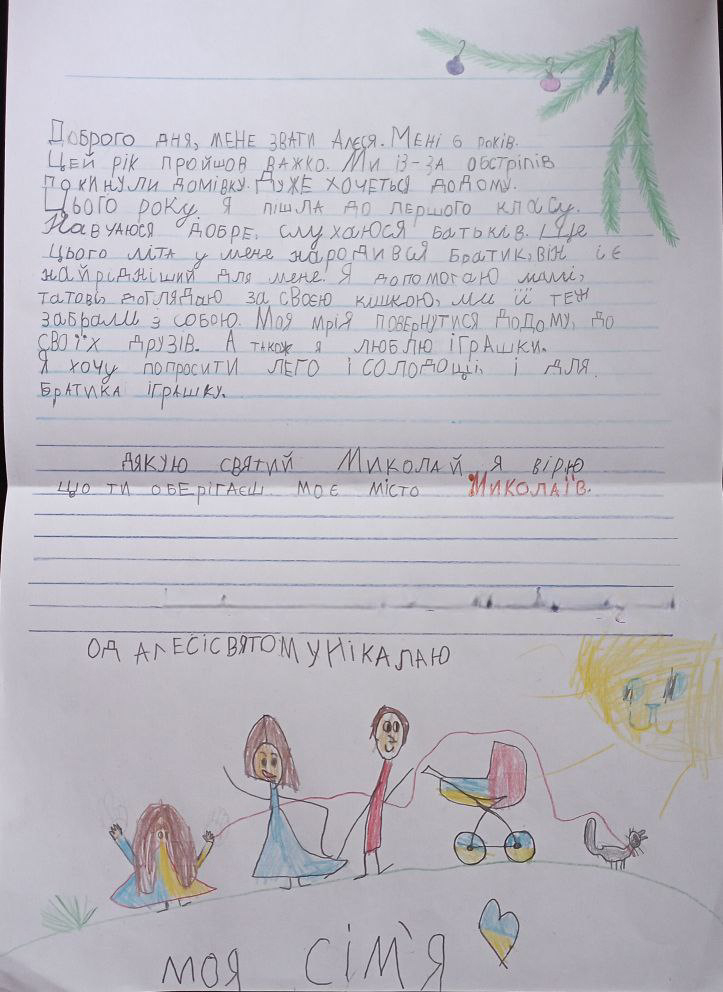 Доброго дня, мене звати Алєся. Мені 6 років.
Цей рік пройшов важко. Ми із-за обстрілів
покинули домівку. Дуже хочеться додому.
Цього року я пішла до першого класу.
Навчаюся добре, слухаюся батьків. І ще
цього літа у мене народився братик, він є
найрідніший для мене. Я допомагаю мамі,
татові, доглядаю за своєю кішкою, ми її теж
забрали з собою. Моя мрія повернутися додому, до
своїх друзів. А також я люблю іграшки.
Я хочу попросити лего і солодощі. і для
братика іграшку.
дякую святий Миколай я вірю
що ти оберігаєш моє місто Миколаїв.
ОД АЛЕСІ СВЯТОМУ НІКАЛАЮ
МОЯ СІМ'Я